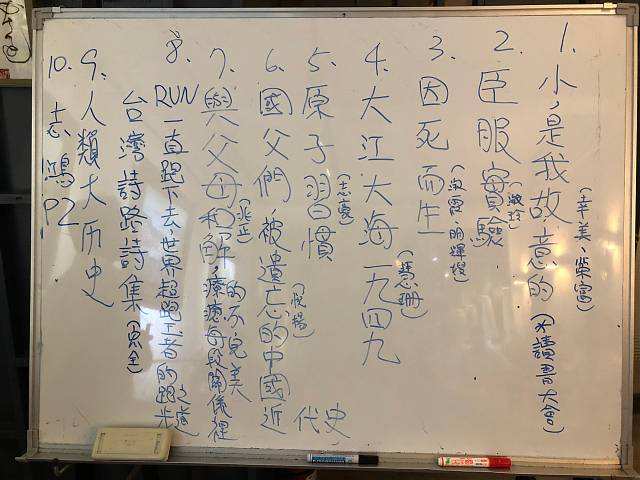 1. 小,是我故意的(不讀書大會)
(幸美、榮富)
2. 臣服實驗
(淑玲)
3. 因死而生
(淑霞、明輝嫂)
4. 大江大海一九四九
(慧珊)
5. 原子習慣
(志豪)
6. 國父們,被遺忘的中國近
代史
7. 與父母和解,療癒每段關係裡
的不完美
(兆正)
8. RUN一直跑下去,世界超跑王者的跑步
之道
台灣詩路詩集
9. 人類大历史
10. 志鴻P2